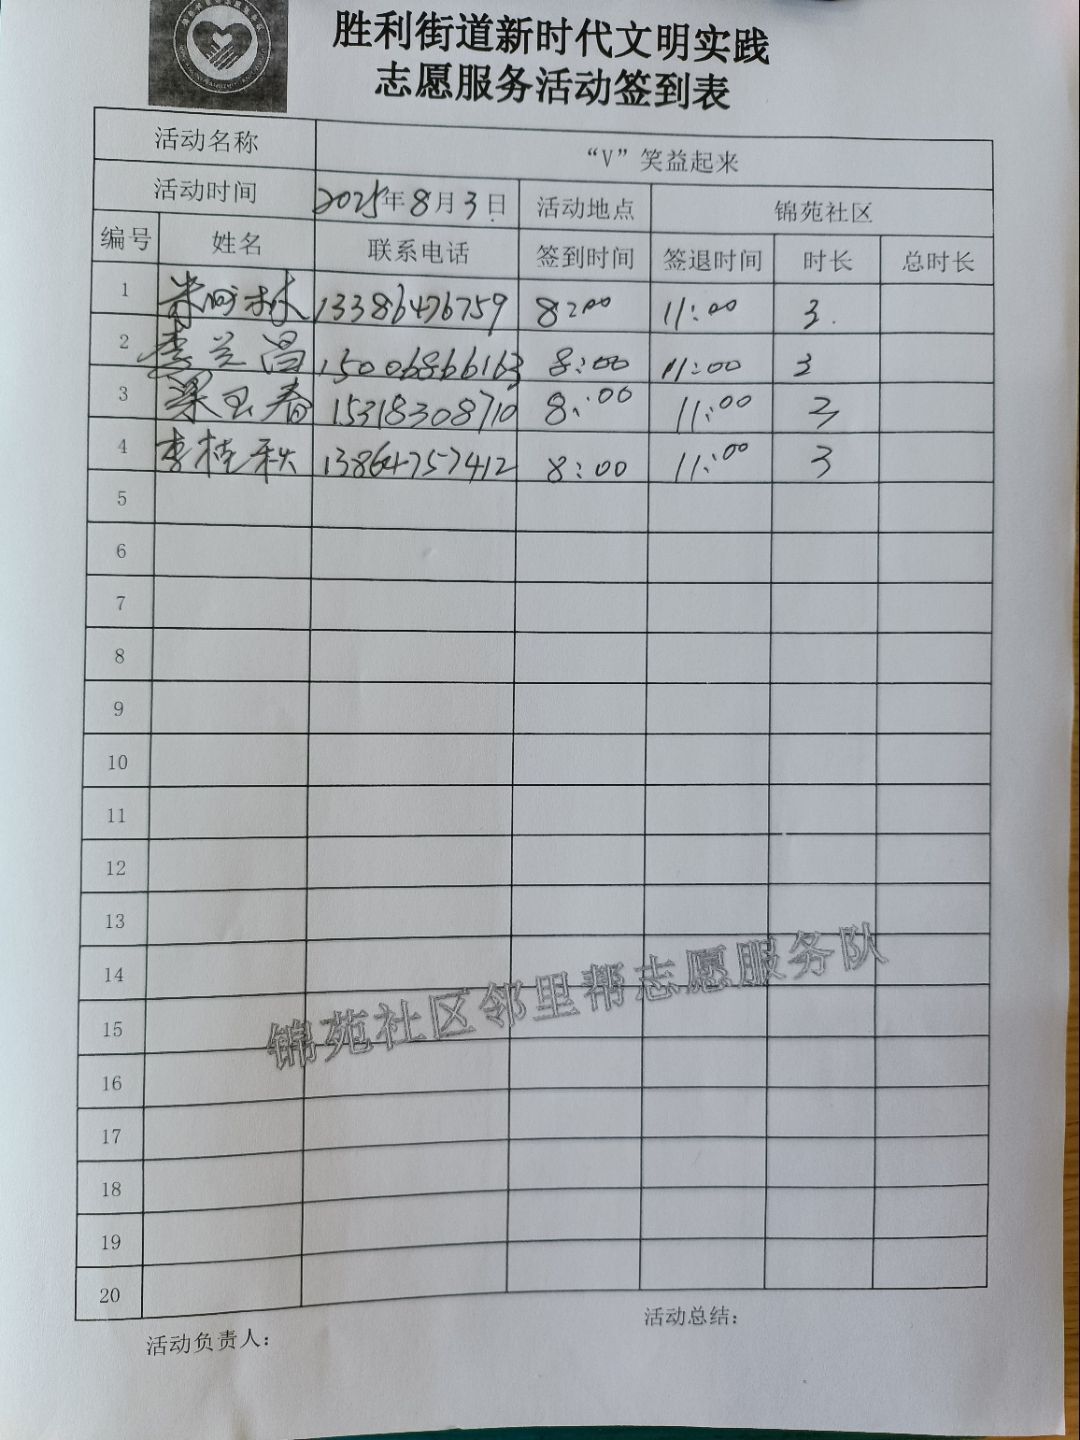 胜利街道新时代文明实践
志愿服务活动签到表
活动名称 “V”笑益起来
活动时间 2025年8月3日 活动地点 锦苑社区
编号 姓名 联系电话 签到时间 签退时间 时长 总时长
1 13386476759 8:00 11:00 3
2 李兰昌 15006866163 8:00 11:00 3
3 梁玉春 15318308710 8:00 11:00 3
4 李桂秋 13864757412 8:00 11:00 3
5
6
7
8
9
10
11
12
13
14
15
16
17
18
19
20
锦苑社区邻里帮志愿服务队
活动负责人：
活动总结：